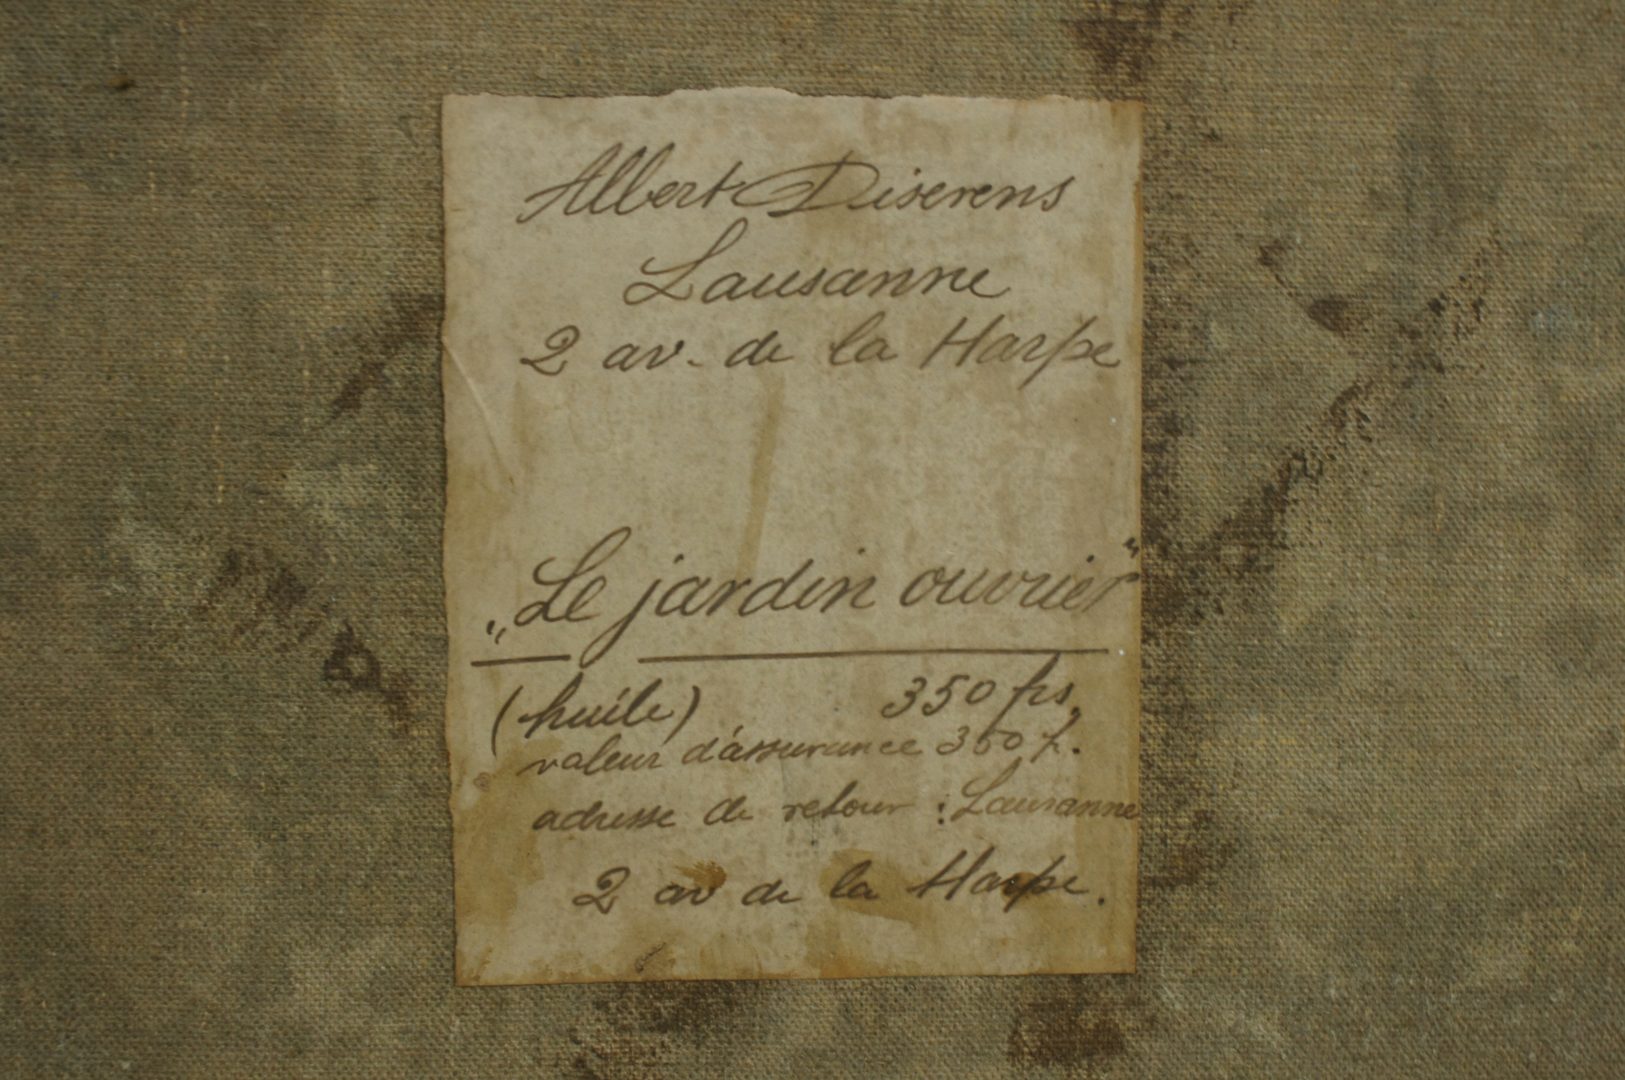 Albert Diserens
Lausanne
2 av. de la Harpe
„Le jardin ouvrier“
(huile) 350 frs.
valeur d'assurance 300 f.
adresse de retour : Lausanne
2 av de la Harpe.